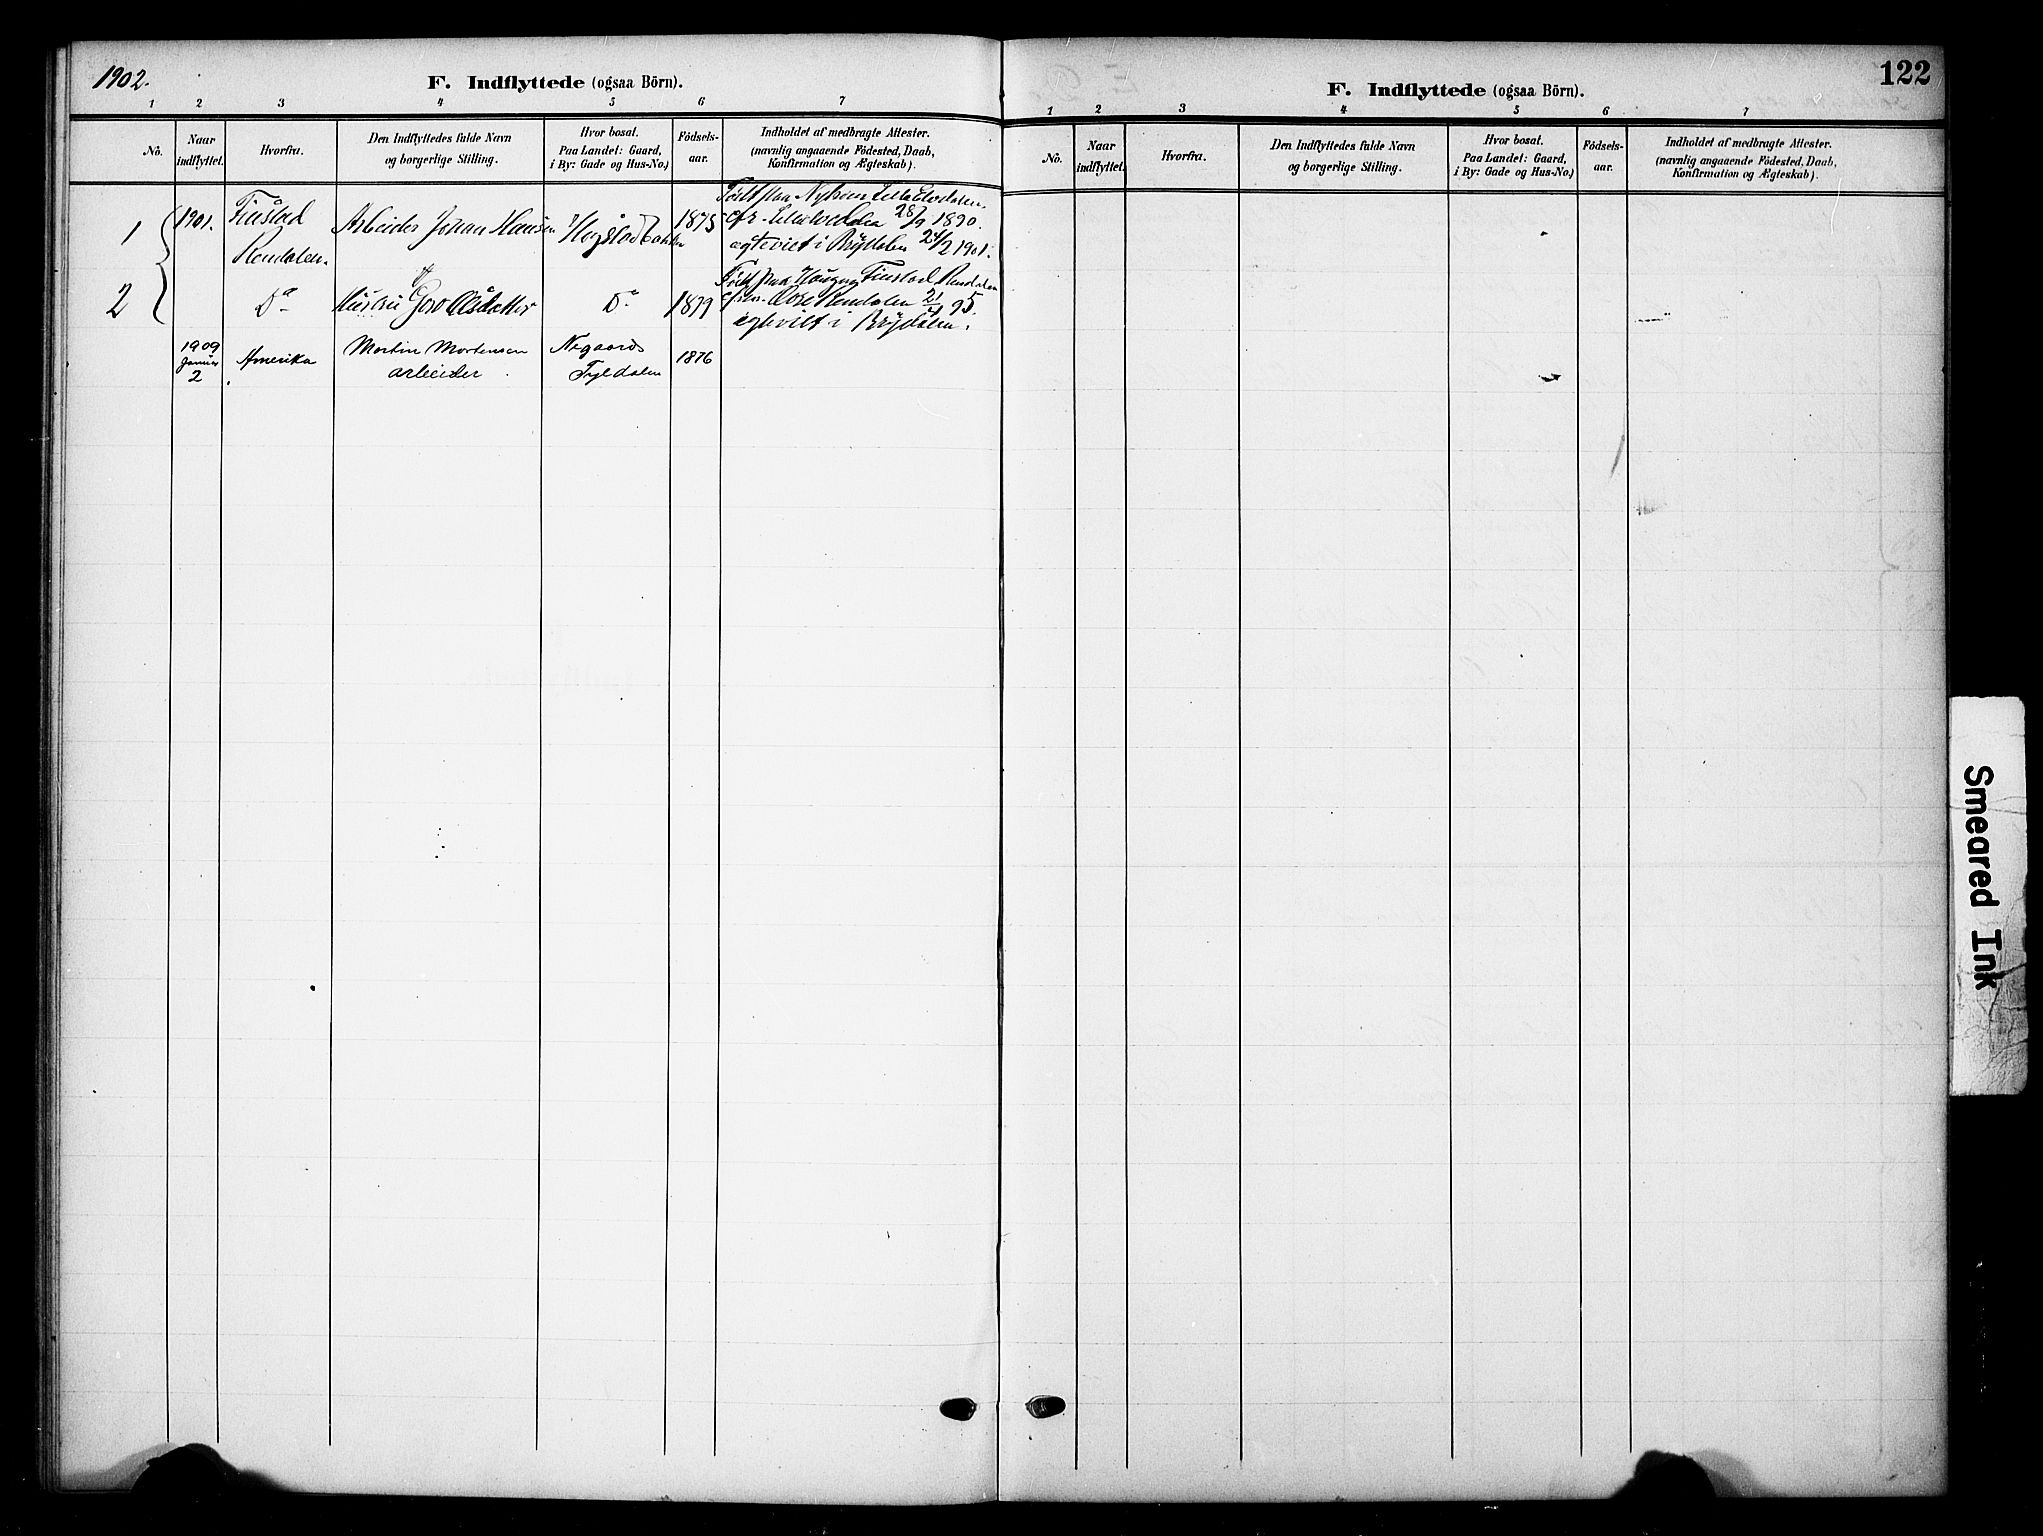 1902.
F. Indflyttede (ogsaa Börn).
1 2 3 4 5 6 7
No.
Naar indflyttet.
Hvorfra.
Den Indflyttedes fulde Navn
og borgerlige Stilling.
Hvor bosat.
Paa Landet: Gaard,
i By: Gade og Hus-No.)
Födsels-
aar.
Indholdet af medbragte Attester.
(navnlig angaaende Födested, Daab,
Konfirmation og Ægteskab).
1 1901. Finstad Arbeider Johan Hansen 1875 Født paa Lille Elvedalen.
Rendalen. 28/9 1890.
ægteviet i Brydalen 24/2 1901.
2 Do Hustru Goro Olsdatter Do 1879 Født paa Finstad Rendalen
Øvre Rendalen 21/4 95.
ægteviet i Brydalen.
1909 Januar 2 Amerika Martin Mortensen Negaards 1876
arbeider Tyldalen
122
F. Indflyttede (ogsaa Börn).
1 2 3 4 5 6 7
No.
Naar indflyttet.
Hvorfra.
Den Indflyttedes fulde Navn
og borgerlige Stilling.
Hvor bosat.
Paa Landet: Gaard,
i By: Gade og Hus-No.)
Födsels-
aar.
Indholdet af medbragte Attester.
(navnlig angaaende Födested, Daab,
Konfirmation og Ægteskab).
Smeared Ink